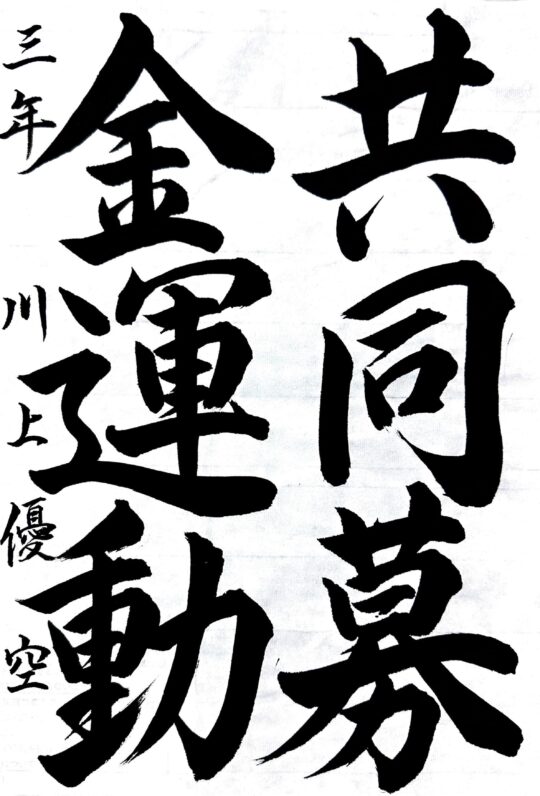 共同募
金運動
三年 川上優空